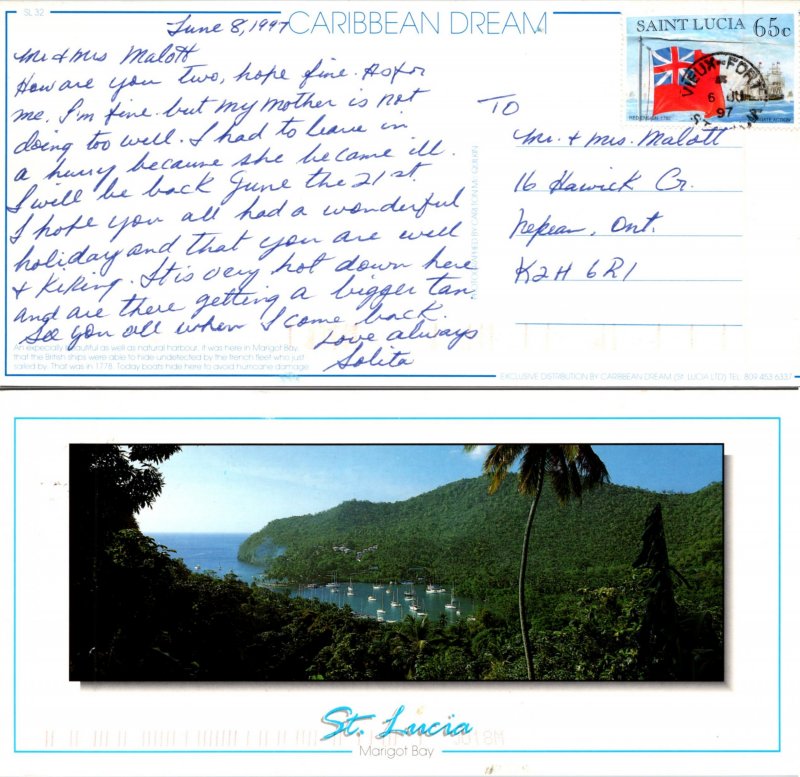 SL 32
CARIBBEAN DREAM
June 8, 1997
Mr & Mrs Malott
How are you two, hope fine. As for
me, I'm fine. but my mother is not
doing too well. I had to leave in
a hurry because she became ill.
I will be back June the 21st.
I hope you all had a wonderful
holiday and that you are well
& Kicking. It is very hot down here
and are there getting a bigger tan.
See you all when I come back.
Love always
Solita
An especially beautiful as well as natural harbour. It was here in Marigot Bay
that the British ships were able to hide undetected by the french fleet who just
sailed by. That was in 1778. Today boats hide here to avoid hurricane damage.
SAINT LUCIA 65c
RED ENSIGN 1782
VIEUX-FORT
6 JU
97
TO
Mr. & Mrs. Malott
16 Hawick Cr.
Nepean, Ont.
K2H 6R1
EXCLUSIVE DISTRIBUTION BY CARIBBEAN DREAM (ST. LUCIA LTD) TEL: 809 453 6337
St. Lucia
Marigot Bay